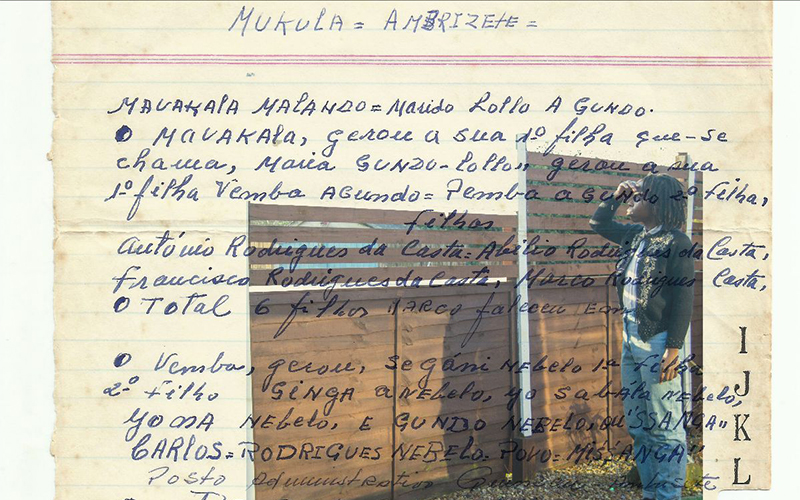 MUKULA = AMBRIZETE =
MAVAKALA MALANDO = Marido Lollo A GUNDO.
O MAVAKALA, gerou a sua 1º filha que-se
chama, Maria GUNDO-Lollo,, gerou a sua
1º filha Vemba AGUNDO = Pemba a GUNDO 2º filha,
filhos
António Rodrigues da Casta = Abílio Rodrigues da Casta,
Francisco Rodrigues da Casta, Marco Rodrigues Casta,
O Total 6 filhos MARCO faleceu Em
O Vemba, gerou, Segáni NEBELO 1º filho
2º filho GINGA a NEBELO, yo sabála NEBELO,
yossA NEBELO, E GUNDO NEBELO, ou "SSANGA"
CARLOS = RODRIGUES NEBELO = POVO = MISSANGA"
Posto Administrativo
I
J
K
L